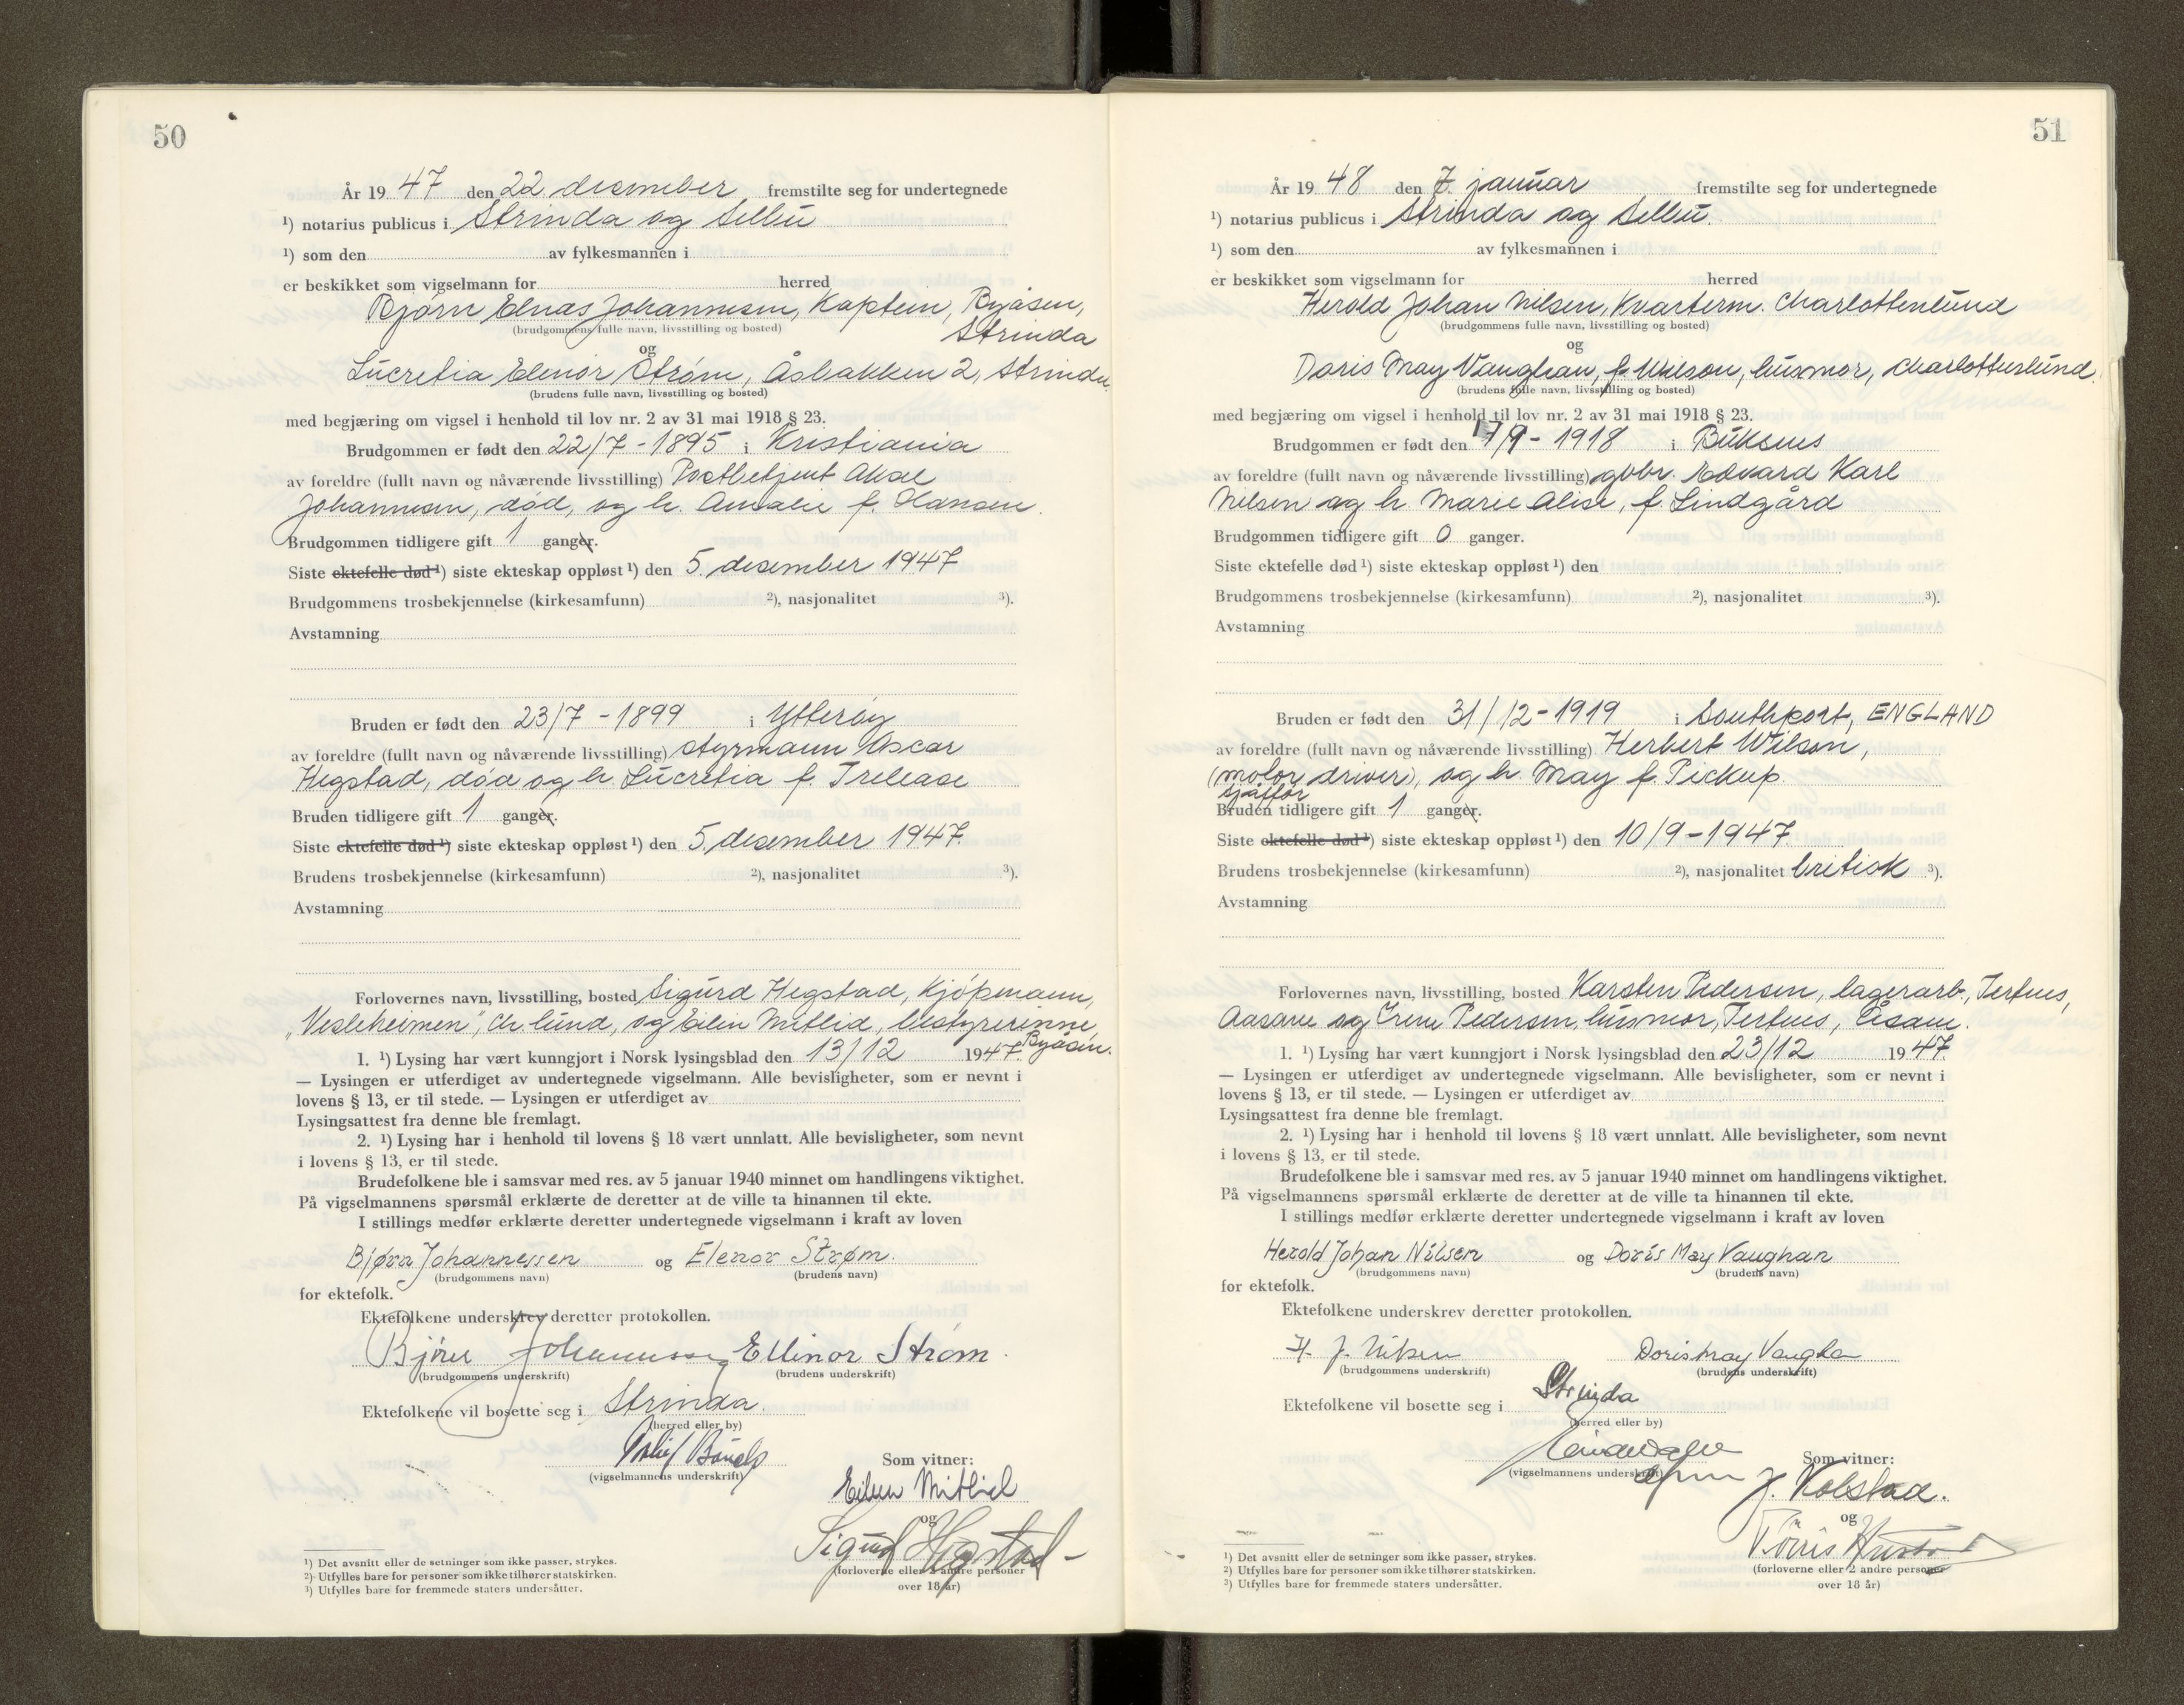 50
År 19 47 den 22 desember fremstilte seg for undertegnede
¹) notarius publicus i Strinda og Selbu
¹) som den av fylkesmannen i
er beskikket som vigselmann for herred
Bjørn Elnas Johannesen, Kaptein, Byåsen,
Strinda
(brudgommens fulle navn, livsstilling og bosted)
og
Lucretia Elenor Strøm, Åsbakken 2, Strinda
(brudens fulle navn, livsstilling og bosted)
med begjæring om vigsel i henhold til lov nr. 2 av 31 mai 1918 § 23.
Brudgommen er født den 22/7 - 1895 i Kristiania
av foreldre (fullt navn og nåværende livsstilling) Postbetjent Aksel
Johannesen, død, og h. Amalie f. Hansen.
Brudgommen tidligere gift 1 ganger.
Siste ektefelle død ¹) siste ekteskap oppløst ¹) den 5. desember 1947
Brudgommens trosbekjennelse (kirkesamfunn) ²), nasjonalitet ³).
Avstamning
Bruden er født den 23/7 - 1899 i Ytterøy
av foreldre (fullt navn og nåværende livsstilling) styrmann Oscar
Hegstad, død og h. Lucretia f. Trelease
Bruden tidligere gift 1 ganger.
Siste ektefelle død ¹) siste ekteskap oppløst ¹) den 5. desember 1947.
Brudens trosbekjennelse (kirkesamfunn) ²), nasjonalitet ³).
Avstamning
Forlovernes navn, livsstilling, bosted Sigurd Hegstad, kjøpmann,
"Vesleheimen", Ch.lund, og Eilin Mitlid, bestyrerinne,
Byåsen.
1. ¹) Lysing har vært kunngjort i Norsk lysingsblad den 13/12 1947.
— Lysingen er utferdiget av undertegnede vigselmann. Alle bevisligheter, som er nevnt i
lovens § 13, er til stede. — Lysingen er utferdiget av
Lysingsattest fra denne ble fremlagt.
2. ¹) Lysing har i henhold til lovens § 18 vært unnlatt. Alle bevisligheter, som nevnt
i lovens § 13, er til stede.
Brudefolkene ble i samsvar med res. av 5 januar 1940 minnet om handlingens viktighet.
På vigselmannens spørsmål erklærte de deretter at de ville ta hinannen til ekte.
I stillings medfør erklærte deretter undertegnede vigselmann i kraft av loven
Bjørn Johannessen og Elenor Strøm.
(brudgommens navn) (brudens navn)
for ektefolk.
Ektefolkene underskrev deretter protokollen.
Bjørn Johannessen Ellinor Strøm.
(brudgommens underskrift) (brudens underskrift)
Ektefolkene vil bosette seg i Strinda.
(herred eller by)
(vigselmannens underskrift)
Som vitner:
Eilin Mitlid
og
Sigurd Hegstad
(forloverne eller 2 andre personer
over 18 år)
¹) Det avsnitt eller de setninger som ikke passer, strykes.
²) Utfylles bare for personer som ikke tilhører statskirken.
³) Utfylles bare for fremmede staters undersåtter.
51
År 19 48 den 7. januar fremstilte seg for undertegnede
¹) notarius publicus i Strinda og Selbu.
¹) som den av fylkesmannen i
er beskikket som vigselmann for herred
Herold Johan Nilsen, Kvarterm. Charlottenlund
(brudgommens fulle navn, livsstilling og bosted)
og
Doris May Vaughan, f. Wilson, husmor, Charlottenlund.
(brudens fulle navn, livsstilling og bosted)
med begjæring om vigsel i henhold til lov nr. 2 av 31 mai 1918 § 23.
Brudgommen er født den 17/9 - 1918 i Buksnes
av foreldre (fullt navn og nåværende livsstilling) gbbr. Edvard Karl
Nilsen og h. Marie Alise, f. Lindgård
Brudgommen tidligere gift 0 ganger.
Siste ektefelle død ¹) siste ekteskap oppløst ¹) den
Brudgommens trosbekjennelse (kirkesamfunn) ²), nasjonalitet ³).
Avstamning
Bruden er født den 31/12 - 1919 i Southport, ENGLAND
av foreldre (fullt navn og nåværende livsstilling) Herbert Wilson,
(motor driver), og h. May f. Pickup.
sjåfør
Bruden tidligere gift 1 ganger.
Siste ektefelle død ¹) siste ekteskap oppløst ¹) den 10/9 - 1947.
Brudens trosbekjennelse (kirkesamfunn) ²), nasjonalitet britisk ³).
Avstamning
Forlovernes navn, livsstilling, bosted Karsten Pedersen, lagerarb., Tertnes,
Aasane og Irene Pedersen, husmor, Tertnes, Åsane.
1. ¹) Lysing har vært kunngjort i Norsk lysingsblad den 23/12 1947.
— Lysingen er utferdiget av undertegnede vigselmann. Alle bevisligheter, som er nevnt i
lovens § 13, er til stede. — Lysingen er utferdiget av
Lysingsattest fra denne ble fremlagt.
2. ¹) Lysing har i henhold til lovens § 18 vært unnlatt. Alle bevisligheter, som nevnt
i lovens § 13, er til stede.
Brudefolkene ble i samsvar med res. av 5 januar 1940 minnet om handlingens viktighet.
På vigselmannens spørsmål erklærte de deretter at de ville ta hinannen til ekte.
I stillings medfør erklærte deretter undertegnede vigselmann i kraft av loven
Herold Johan Nilsen og Doris May Vaughan
(brudgommens navn) (brudens navn)
for ektefolk.
Ektefolkene underskrev deretter protokollen.
H. J. Nilsen Doris May Vaughan
(brudgommens underskrift) (brudens underskrift)
Ektefolkene vil bosette seg i Strinda
(herred eller by)
(vigselmannens underskrift)
Som vitner:
J. Kolstad.
og
(forloverne eller 2 andre personer
over 18 år)
¹) Det avsnitt eller de setninger som ikke passer, strykes.
²) Utfylles bare for personer som ikke tilhører statskirken.
³) Utfylles bare for fremmede staters undersåtter.